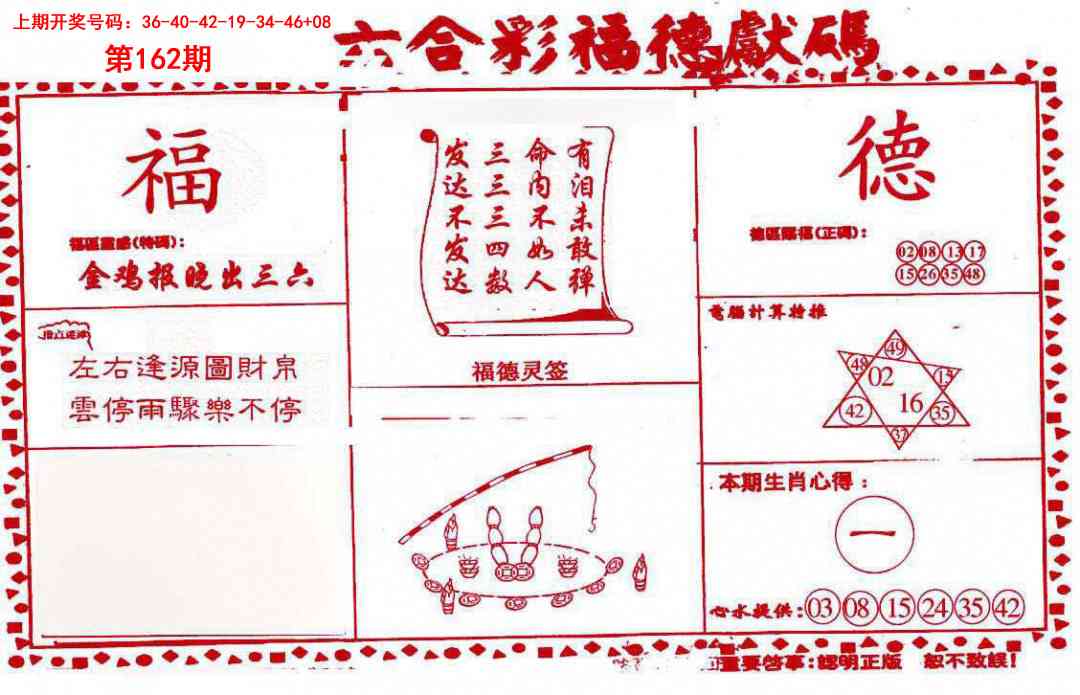 上期开奖号码：36-40-42-19-34-46+08
第162期
六合彩福德獻碼
福
福區靈感(特碼)：
金鸡报晚出三六
左右逢源圖財帛
雲停雨驟樂不停
有泪未敢弹
命内不如人
三三三四数
发达不发达
福德灵签
德
德區賜福(正碼)：
02 08 13 17
15 26 35 48
電腦計算特推
49
48 02 15
42 16 35
37
本期生肖心得：
一
心水提供：03 08 15 24 35 42
重要啓事：認明正版 恕不致誤！